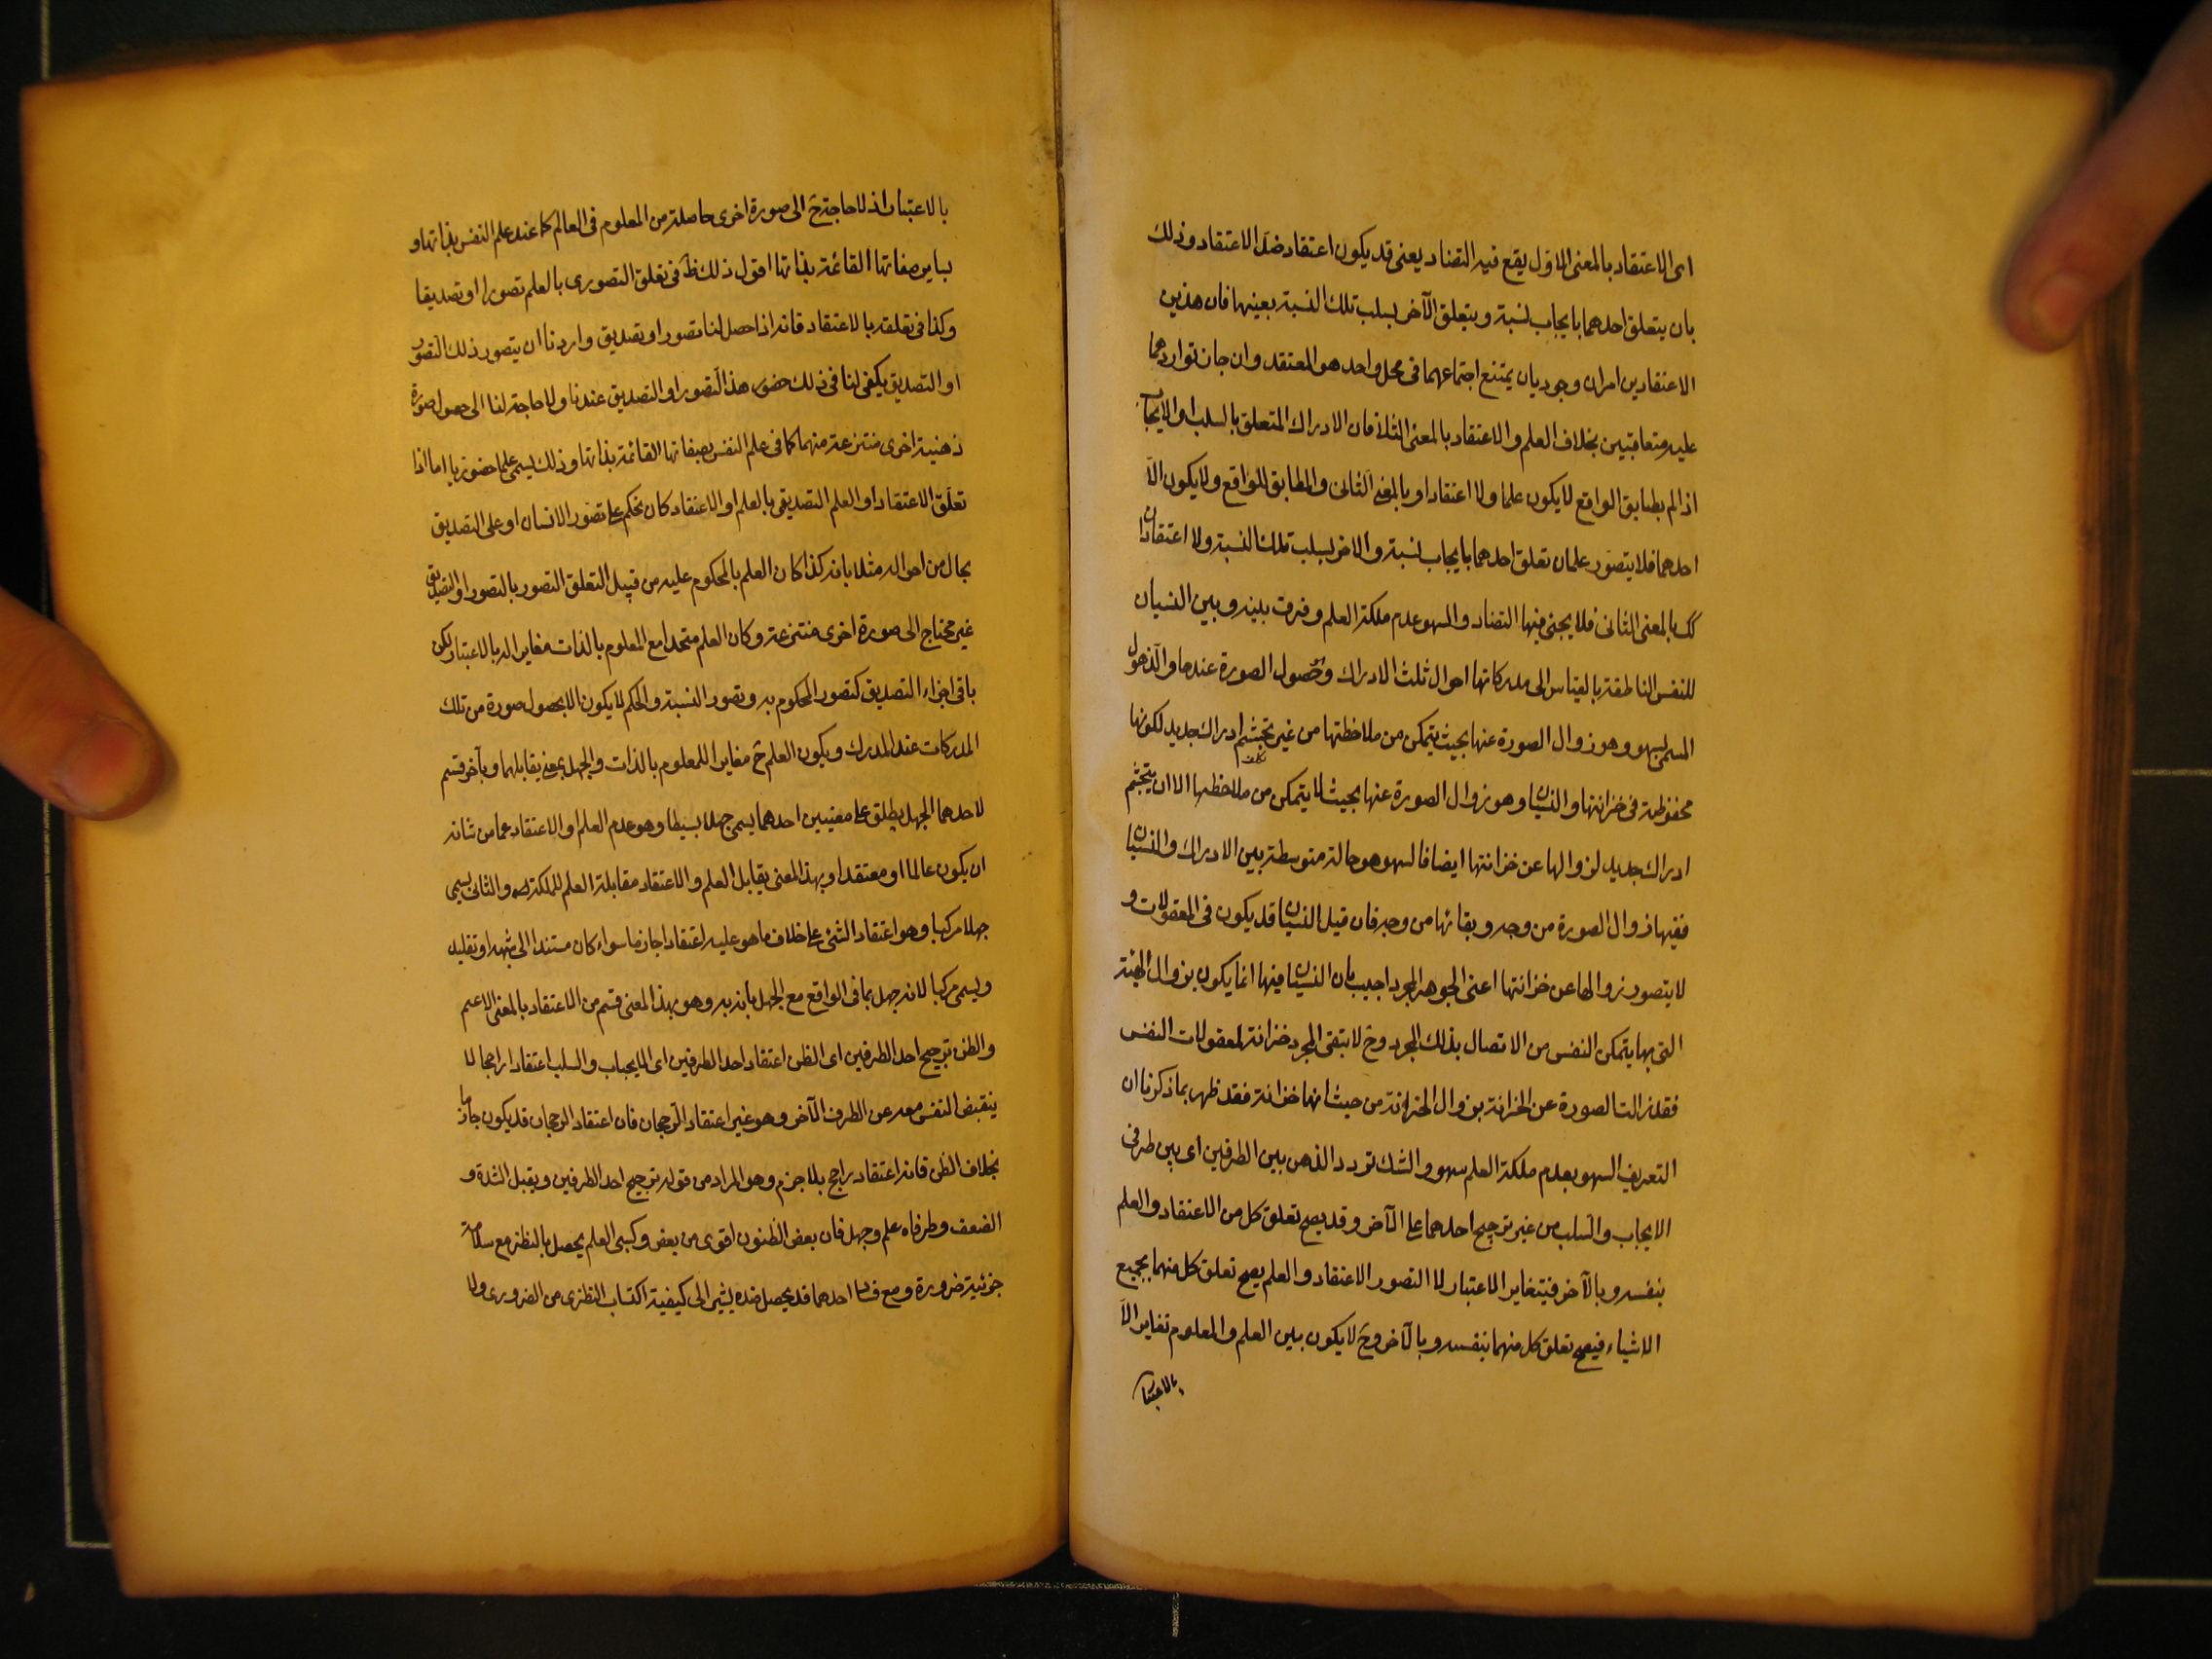 اى الاعتقاد بالمعنى الاول يقع فيه التضاد يعنى قد يكون اعتقاد ضد الاعتقاد وذلك
بان يتعلق احدهما بايجاب نسبة ويتعلق الآخر بسلب تلك النسبة بعينها فان هذين
الاعتقادين امران وجوديان يمتنع اجتماعهما فى محل واحد هو المعتقد وان جاز تواردهما
عليه متعاقبين بخلاف العلم والاعتقاد بالمعنى الثانى فان الادراك المتعلق بالسلب او الايجاب
اذا لم يطابق الواقع لا يكون علما ولا اعتقادا بالمعنى الثانى والمطابق للواقع ولا يكون الا
احدهما فلا يتصور علمان تعلق احدهما بايجاب نسبة والاخر بسلب تلك النسبة ولا اعتقادان
كك بالمعنى الثانى فلا يجئ فيها التضاد والسهو عدم ملكة العلم وفرقت بينه وبين النسيان
للنفس الناطقة بالقياس الى مدركاتها احوال ثلث الادراك وهو حصول الصورة عندها والذهول
المسمى بسهو وهو زوال الصورة عنها بحيث يتمكن من ملاحظتها من غير تجشم ادراك جديد لكونها
تكلف
محفوظة فى خزانتها والنسيان وهو زوال الصورة عنها بحيث لا يتمكن من ملاحظتها الا ان يتجشم
ادراك جديد لزوالها عن خزانتها ايضا فالسهو هو حالة متوسطة بين الادراك والنسيان
ففيها زوال الصورة من وجه وبقائها من وجه فان قيل النسيان قد يكون فى المعقولات و
لا يتصور زوالها عن خزانتها اعنى الجوهر المجرد اجيب بان النسيان فيها انما يكون بزوال الهيئة
التى بها يتمكن النفس من الاتصال بذلك المجرد وح لا يبقى المجرد خزانة لمعقولات النفس
فقد زالت الصورة عن الخزانة بزوال الخزانة من حيث انها خزانة فقد ظهر بما ذكرنا ان
التعريف السهو بعدم ملكة العلم سهو والشك تردد الذهن بين الطرفين اى بين طرفى
الايجاب والسلب من غير ترجيح احدهما على الآخر وقد يصح تعلق كل من الاعتقاد والعلم
بنفسه وبالآخر فيتغاير الاعتبار لا التصور الاعتقاد والعلم يصح تعلق كل منهما بجميع
الاشياء فيصح تعلق كل منهما بنفسه وبالآخر وح لا يكون بين العلم والمعلوم تغاير الا
بالاعتبار
بالاعتبار اذ لا حاجة ح الى صورة اخرى حاصلة من المعلوم فى العالم كما عند علم النفس بذاتها و
بساير صفاتها القائمة بذاتها اقول ذلك ظ فى تعلق التصورى بالعلم تصورا او تصديقا
وكذا فى تعلقه بالاعتقاد فانه اذا حصل لنا تصور او تصديق واردنا ان يتصور ذلك التصور
او التصديق يكفى لنا فى ذلك حضور هذا التصور او التصديق عندنا ولا حاجة لنا الى حصول صورة
ذهنية اخرى منتزعة منهما كما فى علم النفس بصفاتها القائمة بذاتها وذلك يسمى علما حضوريا اما اذا
تعلق الاعتقاد او العلم التصديقى بالعلم او الاعتقاد كان نحكم على تصور الانسان او على التصديق
بحال من احواله مثلا بانه كذا كان العلم بالمحكوم عليه من قبيل التعلق التصور بالتصور او التصديق
غير محتاج الى صورة اخرى منتزعة وكان العلم متحدا مع المعلوم بالذات مغايرا له بالاعتبار لكن
باقى اجزاء التصديق كتصور المحكوم به وتصور النسبة والحكم لا يكون الا بحصول صورة من تلك
المدركات عند المدرك ويكون العلم ح مغايرا للمعلوم بالذات والجهل بمعنى يقابلهما وبآخر قسم
لاحدهما الجهل يطلق على معنيين احدهما يسمى جهلا بسيطا وهو عدم العلم او الاعتقاد عما من شانه
ان يكون عالما او معتقدا وبهذا المعنى يقابل العلم والاعتقاد مقابلة العدم للملكة والثانى يسمى
جهلا مركبا وهو اعتقاد الشئ على خلاف ما هو عليه اعتقادا جازما سواء كان مستندا الى شبهة او تقليد
ويسمى مركبا لانه جهل بما فى الواقع مع الجهل بانه به وهو بهذا المعنى قسم من الاعتقاد بالمعنى الاعم
والظن ترجيح احد الطرفين اى الظن اعتقاد احد الطرفين اى الايجاب والسلب اعتقادا راجحا لا
ينقبض النفس معه عن الطرف الآخر وهو غير اعتقاد الرجحان فان اعتقاد الرجحان قد يكون جازما
بخلاف الظن فانه اعتقاد راجح بلا جزم وهو المراد من قوله ترجيح احد الطرفين ويقبل الشدة و
الضعف وطرفاه علم وجهل فان بعض الظنون اقوى من بعض وكسبى العلم يحصل بالنظر مع سلامة
جزئية ضرورة ومع فساد احدهما قد يحصل ضده يشير الى كيفية اكتساب النظرى من الضرورى ولا